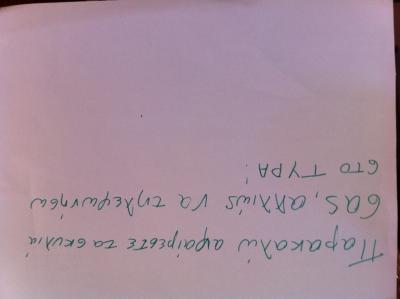 Παρακαλώ αφαιρέστε τα σκυλιά
σας, αλλιώς να τηλεφωνήσω
στο ΤΥΡΑ!